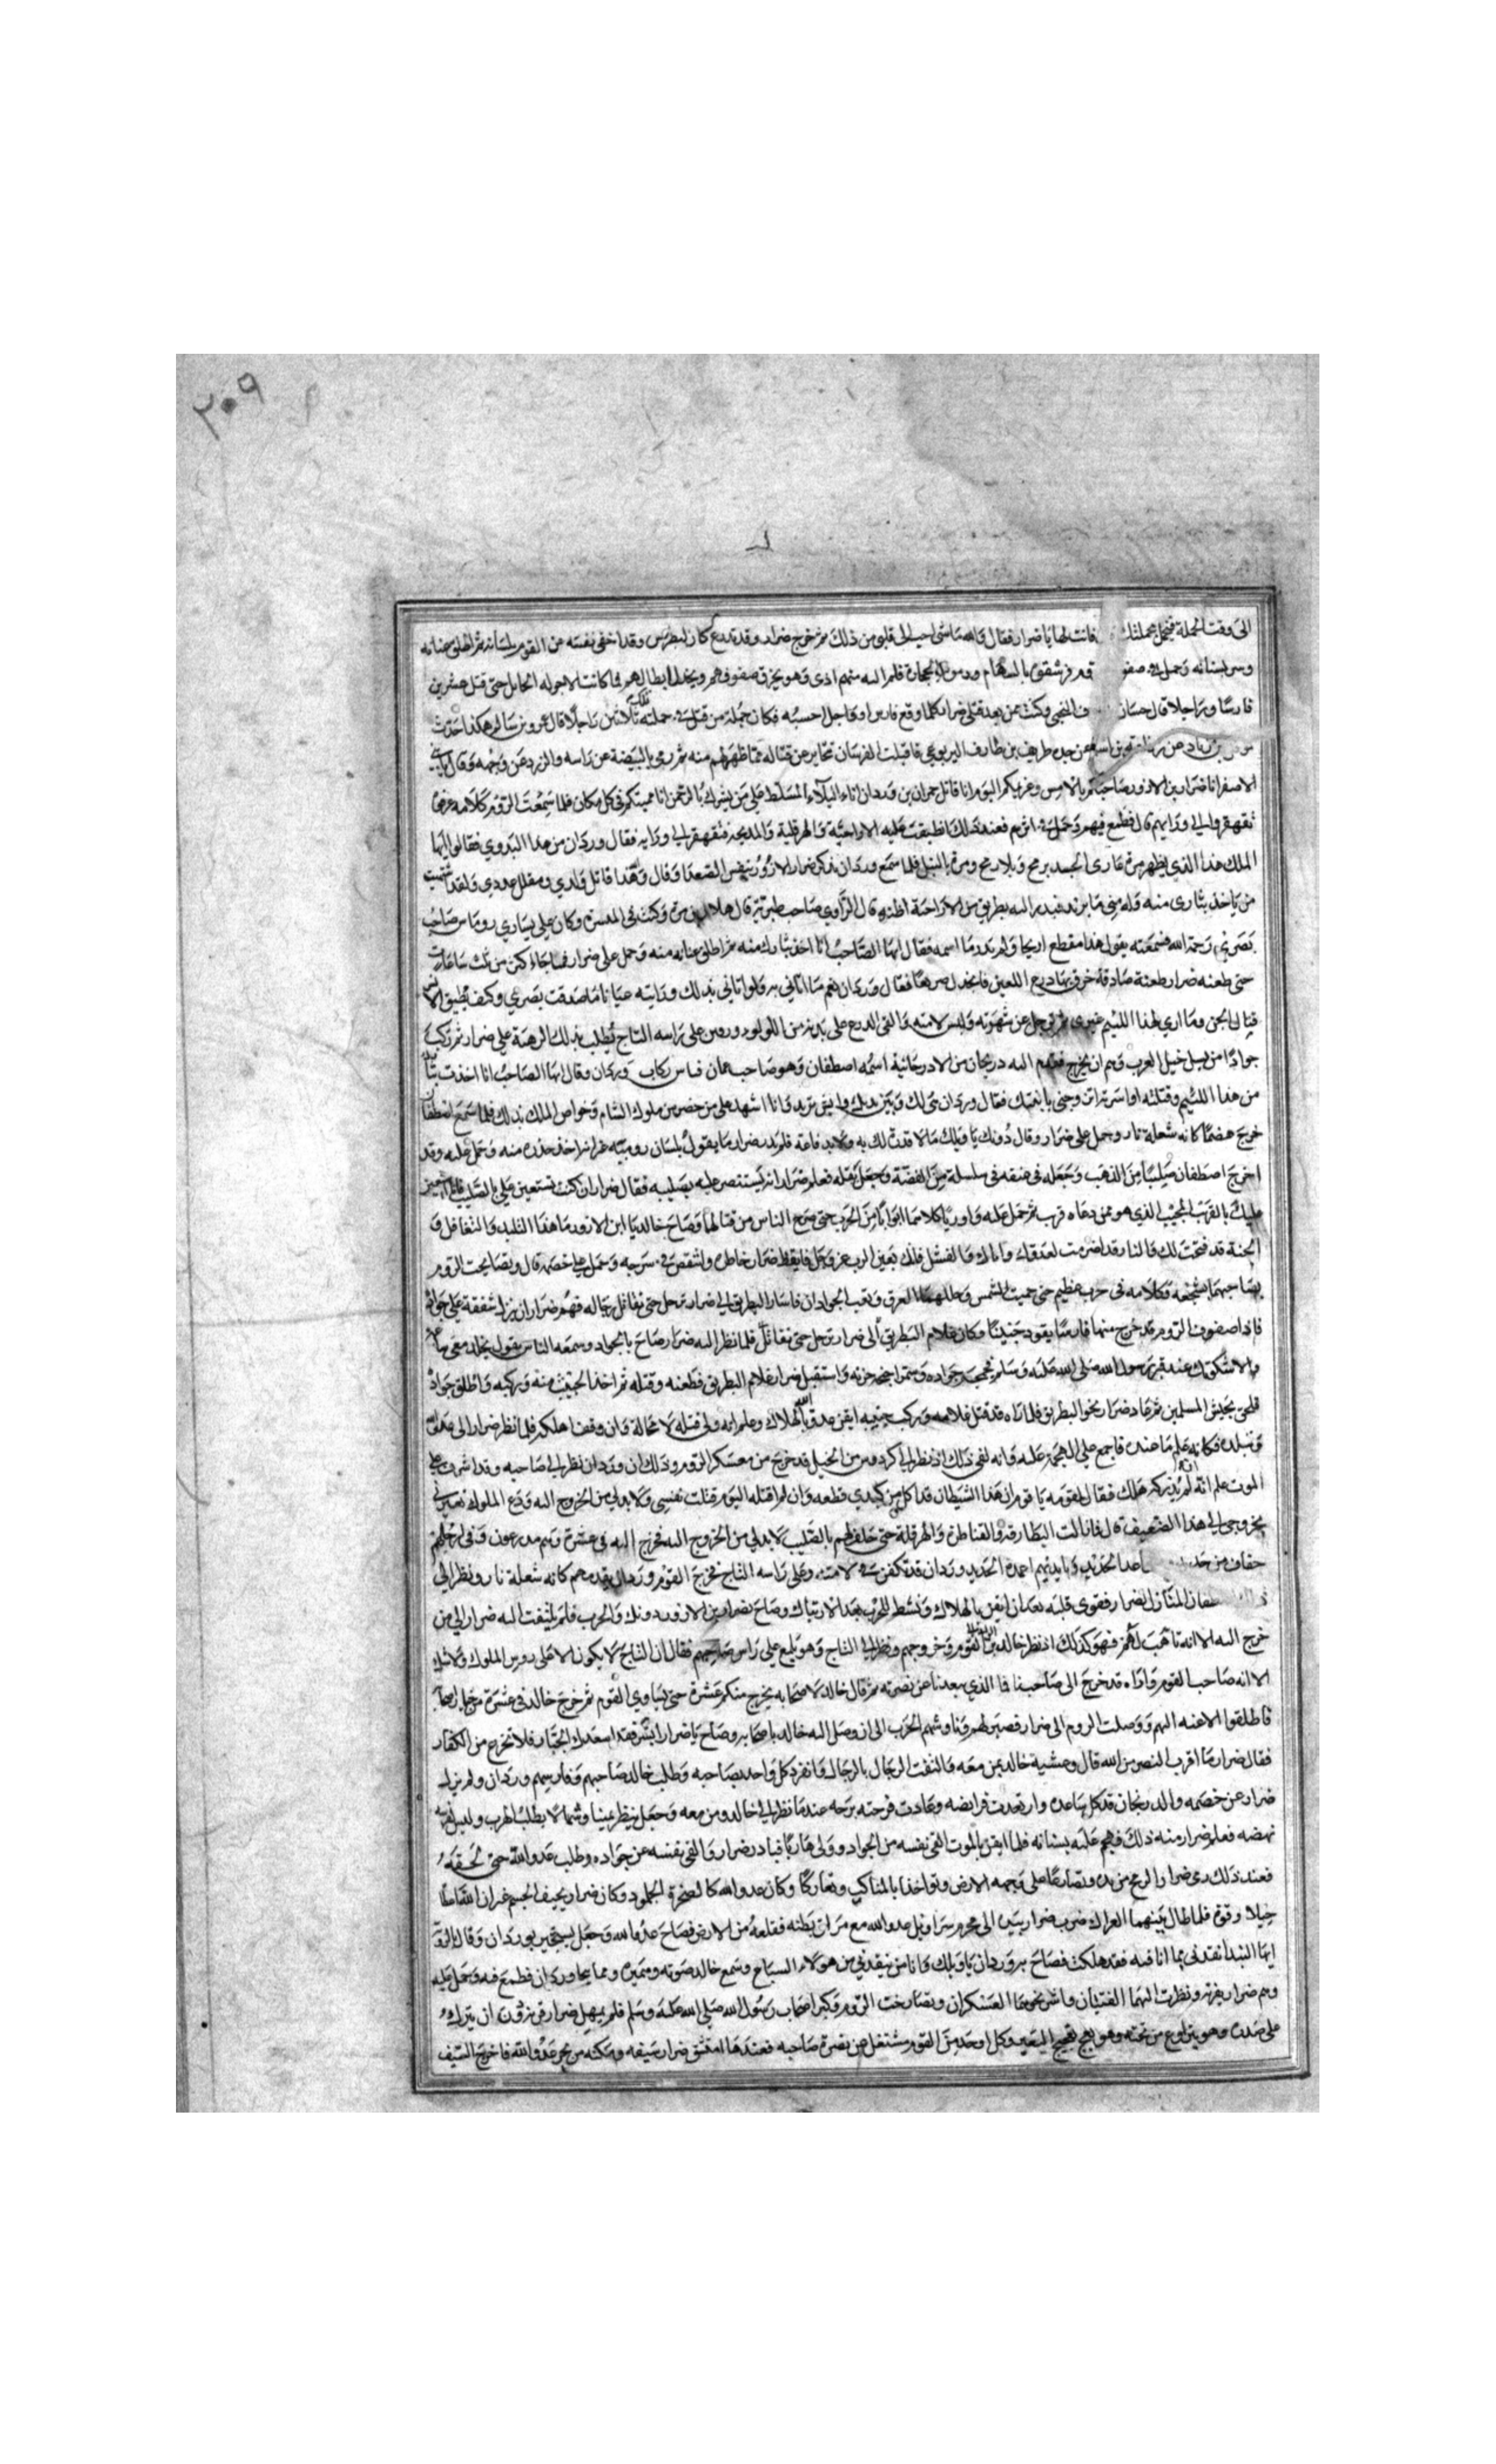 ٢٠٩
الى وقت الحملة فيحمل بحملتك فانت لها يا ضرار فقال والله ما شى احب الى قلبى من ذلك ثم خرج ضرار وقد تدرع كان لبطرس وقد اخفى نفسه عن القوم بلسانه ثم اطلق عنانه
وسر بسنانه وحمل فى صفو فرشقوه بالسهام بالحجارة فلم اليه منهم اذى وهو يخرق صفوفهم ويجندل ابطالهم فما كانت الا جولة الجايل حتى قتل عشرين
فارسا وراجلا قال حسان النخعى وكنت ممن يعد قتلى ضرار كلما وقع فارس او راجل احسبه فكان جملة من قتل فى حملته تلك ثلاثين راجلا قال عمرو بن سالم هكذا حدثت
بن زياد عن عن جده طريف بن طارف اليربوعى فاقبلت الفرسان تحاير عن قتاله مما ظهر لهم منه ثم رمى بالبيضة عن راسه والزرد عن وجهه وقال يا بنى
الاصفر انا ضرار بن الازور صاحبكم بالامس وغريمكم اليوم انا قاتل حمران بن وردان انا البلاء المسلط على من يشرك بالرحمن انا مميتكم فى كل مكان فلما سمعت الروم كلامه عرفوه
تقهقروا الى ورايهم قال فطمع فيهم وحمل فى اثرهم فعند ذلك انطبقت عليه الاراجية والهرقلية والمدبجة فتقهقر الى ورايه فقال وردان من هذا البدوى فقالوا ايها
الملك هذا الذى يظهر مرة عارى الجسد برمح وبلا رمح ومرة بالنبل فلما سمع وردان بذكر ضرار الازور تنفس الصعدا وقال هذا قاتل ولدى ومقلل عددى ولقد اشتهيت
من ياخذ بثارى منه وله منى ما يريد فبدر اليه بطريق من الاراحية اظنه قال الراوى صاحب طبرية قال هلال بن مرة وكنت فى الميسرة وكان على يسارى روماس صاحب
بصرى رحمه الله فسمعته يقول هذا مقطع اريحا ولم يدر ما اسمه فقال ايها الصاحب انا اخذ بثارك منه ثم اطلق عنانه منه وحمل على ضرار فما جاء اكثر من ثلث ساعات
حتى طعنه ضرار طعنة صادقة خرق بها درع اللعين فانجدل صريعا فقال وردان نعم ما اتانى به ولو اتانى بذلك ورايته عيانا ما صدقت بصرى وكيف يطيق الانس
قتال الجن وما ارى لهذا اللئيم غيرى ثم ترجل عن شهوته ولبس لامته والقى الدرع على بدنه من اللولو ودور من على راسه التاج يطلب بذلك الرهبة على ضرار ثم ركب
جوادا من نسل خيل العرب وهم ان يخرج فتقدم اليه دريحان من الادرحانية اسمه اصطفان وهو صاحب عمان فباس ركاب وردان وقال ايها الصاحب انا اخذت بثا
من هذا اللئيم وقتلته او اسرته اتزوجنى بابنتك فقال وردان هى لك وبين يديك وايش تريد وانا اشهد على من حضر من ملوك الشام وخواص الملك بذلك فلما سمع اصطفان
خرج هضما كانه شعلة نار وحمل على ضرار وقال دونك يا ويلك ما لا قدرة لك به ولا يد فاعة فلم يدر ضرار ما يقول بلسان رومييه غير انه اخذ حذره منه وحمل عليه وقد
اخرج اصطفان صليبا من الذهب وجعله فى عنقه فى سلسلة من الفضة وجعل يقبله فعلم ضرار انه يستنصر عليه بصليبه فقال ضرار ان كنت تستعين على بالصليب فانا استعين
عليك بالقريب المجيب الذى هو ممن دعاه قريب ثم حمل عليه واوريا كلاهما ابوابا من الحرب حتى ضج الناس من قتالهما وصاح خالد يا ابن الازور ما هذا التلبد والتغافل و
الجنة قد فتحت لك والنار قد اضرمت لعدوك واياك والفشل فانك بعين الرب عز وجل فايقظ ضرار خاطره وانتفض فى سرجه وحمل على خصمه قال وتصايحت الروم
بصاحبهما تشجعه وكلامه فى حرب عظيم حتى حميت الشمس وجللهما العرق وتعب الجوادان فاشار البطريق الى ضرار ترجل حتى نقاتل رجاله فهم ضرار ان ينزل شفقة على جواده
فاذا صفوف الروم قد خرج منها فارسا يقود جنيبا وكان غلام البطريق الى ضرار ترجل حتى نقاتل فلما نظر اليه ضرار صاح بالجواد وسمعه الناس يقول تجلد معى ساعة
والا شكوتك عند قبر رسول الله صلى الله عليه وسلم فحمحم جواده وشمر اجنحته واستقبل ضرار غلام البطريق فطعنه وقتله ثم اخذ الجنيب منه وركبه واطلق جواده
فلحق بجيش المسلمين ثم عاد ضرار نحو البطريق فلما راه قد قتل غلامه وركب جنيبه ايقن عدو الله بالهلاك وعلم انه ولى قتله لا محالة وان وقف اهلكه فلما نظر ضرار الى عدو الله
وتبلده فكانه علم ما عنده فاجمع على الهجمة عليه وانه لفى ذلك اذ نظر الى كردوس من الخيل قد خرج من معسكر الروم وذلك ان وردان نظر الى صاحبه وقد اشرف على
الموت علم انه ان لم يدركه هلك فقال لقومه يا قوم ان هذا الشيطان قد اكل من كبدى قطعة وان لم اقتله اليوم قتلت نفسى ولا بد لى من الخروج اليه ودع الملوك تعيرنى
بخروجى الى هذا الضعيف قال فابالت البطارقة والقناطرة والهرقلة حتى حلف لهم بالصليب لا بد لى من الخروج اليه فخرج اليه فى عشرة وهم مدرعون وفى ارجلهم
خفاف من حديد اعد الحديد وبايديهم اعمدة الحديد ووردان قد تكفن فى لامته وعلى راسه التاج فخرج القوم ووردان يقدمهم كانه شعلة نار ونظر الى
طفان المنازل لضرار فقوى قلبه بعد ان ايقن بالهلاك ونشط للحرب بعد الارتباك وصاح بضرار بن الازور دونك والحرب فلم يلتفت اليه ضرار الى من
خرج اليه الا انه تاهب لهم فهو كذلك اذ نظر خالد بن الوليد القوم وخروجهم ونظر الى التاج وهو يلمع على راس صاحبهم فقال ان التاج لا يكون الا على روس الملوك ولا شك
الا انه صاحب القوم واذاه قد خرج الى صاحبنا فما الذى يبعدنا عن نصرته ثم قال خالد لاصحابه يخرج منكم عشرة حتى يساوى القوم ثم خرج خالد فى عشرة من خيار اصحابه
فاطلقوا الاعنة اليهم ووصلت الروم الى ضرار فصبر لهم وناوشهم الحرب الى ان وصل اليه خالد باصحابه وصاح يا ضرار ابشر فقد اسعدك الجبار فلا تخرع من الكفار
فقال ضرار ما اقرب النصر من الله قال وغشيه خالد بمن معه والتقت الرجال بالرجال وانفرد كل واحد بصاحبه وطلب خالد صاحبهم وفارسهم وردان ولم يزل
ضرار عن خصمه والدريحان قد كل ساعده وارتعدت فرايضه وعادت فرحته برحه عندما نظر الى خالد ومن معه وجعل ينظر يمينا وشمالا يطلب الهرب وليس لفرسه
نهضه فعلم ضرار منه ذلك فهجم عليه بسنانه فلما ايقن بالموت القى نفسه من الجواد وولى هاربا فبادر ضرار والقى نفسه عن جواده وطلب عدو الله حتى لحقه
فعند ذلك رمى ضرار الرمح من يده وتصارعا على وجه الارض وتواخذا بالمناكب وتعاركا وكان عدو الله كالصخرة الجلمود وكان ضرار نحيف الجسم غير ان الله اعطاه
حيلا وقوة فلما طال بينهما العراك ضرب ضرار بيده الى محزم سراويل عدو الله مع مراق بطنه فقلعه من الارض فصاح عدو الله وجعل يستجير بوردان وقال بالرومية
ايها السيد انقذنى مما انا فيه فقد هلكت فصاح به وردان يا ويلك وانا من ينقذنى من هولاء السباع وسمع خالد صوته وهميره ومما يحاوردان فطمع فيه وحمل عليه
وهم ضرار بقرنه ونظرت اليهما الفتيان واشرف نحوهما العسكران وتصارخت الروم وكبر اصحاب رسول الله صلى الله عليه وسلم فلم يمهل ضرار قرنه دون ان يتركه
على صدره وهو ينزلوع من تحته وهو يعج عجيج البعير وكل اوحد من القوم مشتغل عن نصرة صاحبه فعندها امتشق ضرار سيفه ومكنه من نحر عدو الله فاخرج السيف